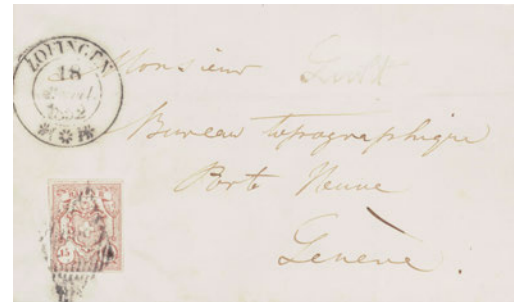 ZOFINGEN
18
1852
Monsieur
Bureau topographique
Porte Neuve
Genève.